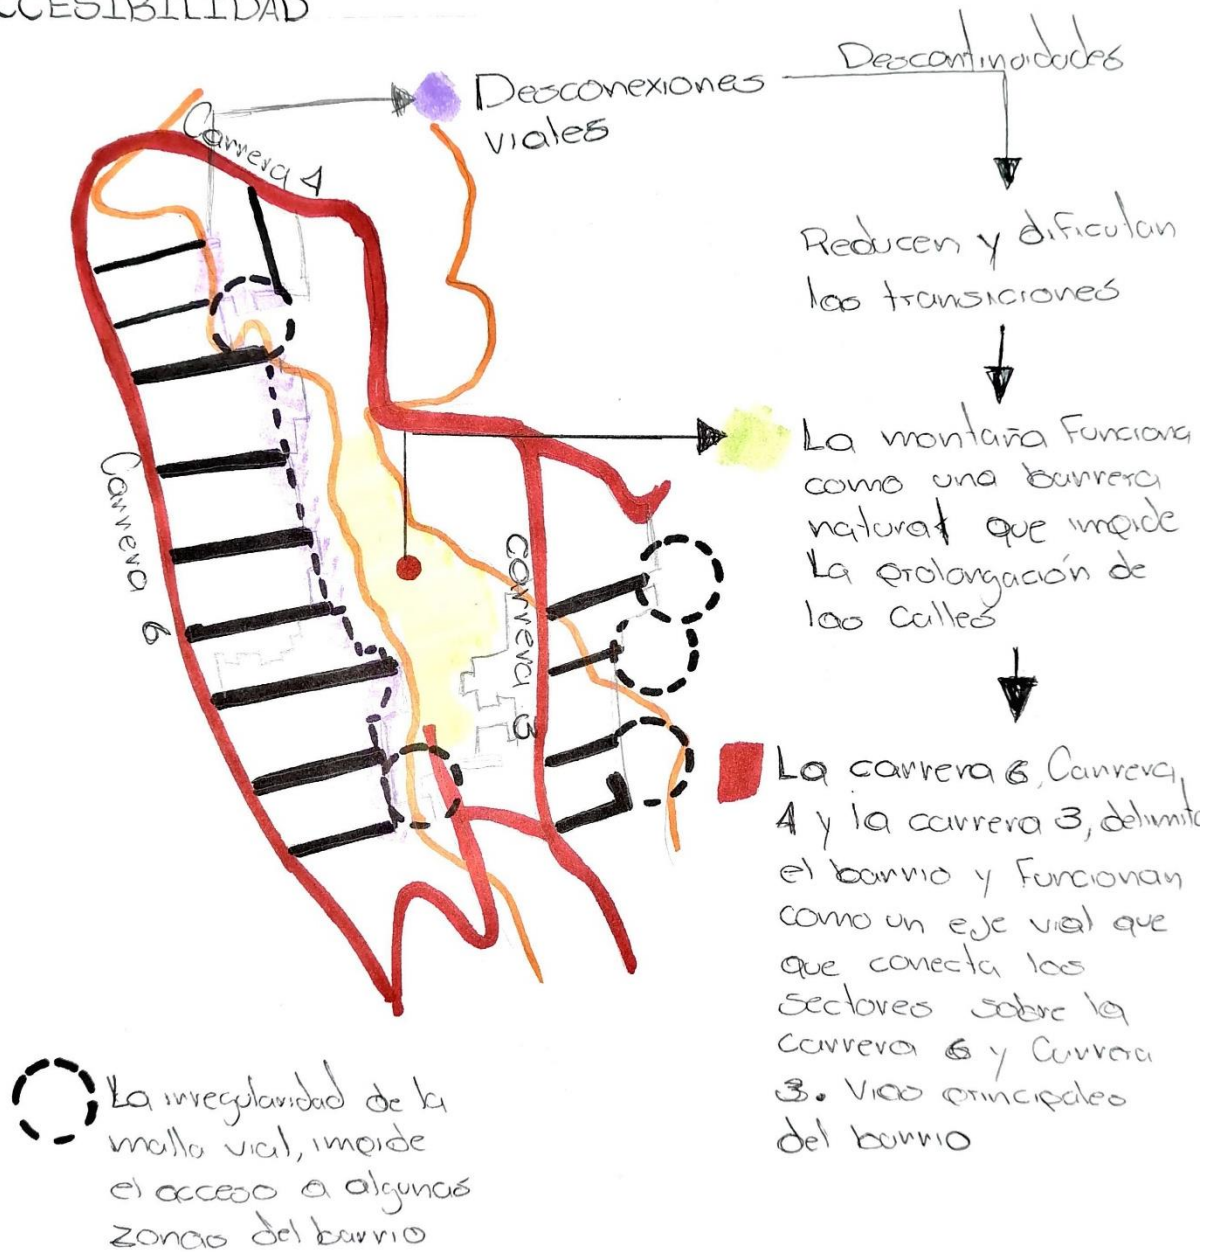 CCESIBILIDAD
Desconexiones
viales
Descontinuidades
Carrera 4
Reducen y dificultan
las transiciones
La montaña Funciona
como una barrera
natural que impide
La prolongación de
las calles
Carrera 6
Carrera 3
La carrera 6, Carrera,
4 y la carrera 3, delimita
el barrio y Funcionan
como un eje vial que
que conecta los
sectores sobre la
carrera 6 y Carrera
3. Vias principales
del barrio
La irregularidad de la
malla vial, impide
el acceso a algunas
zonas del barrio